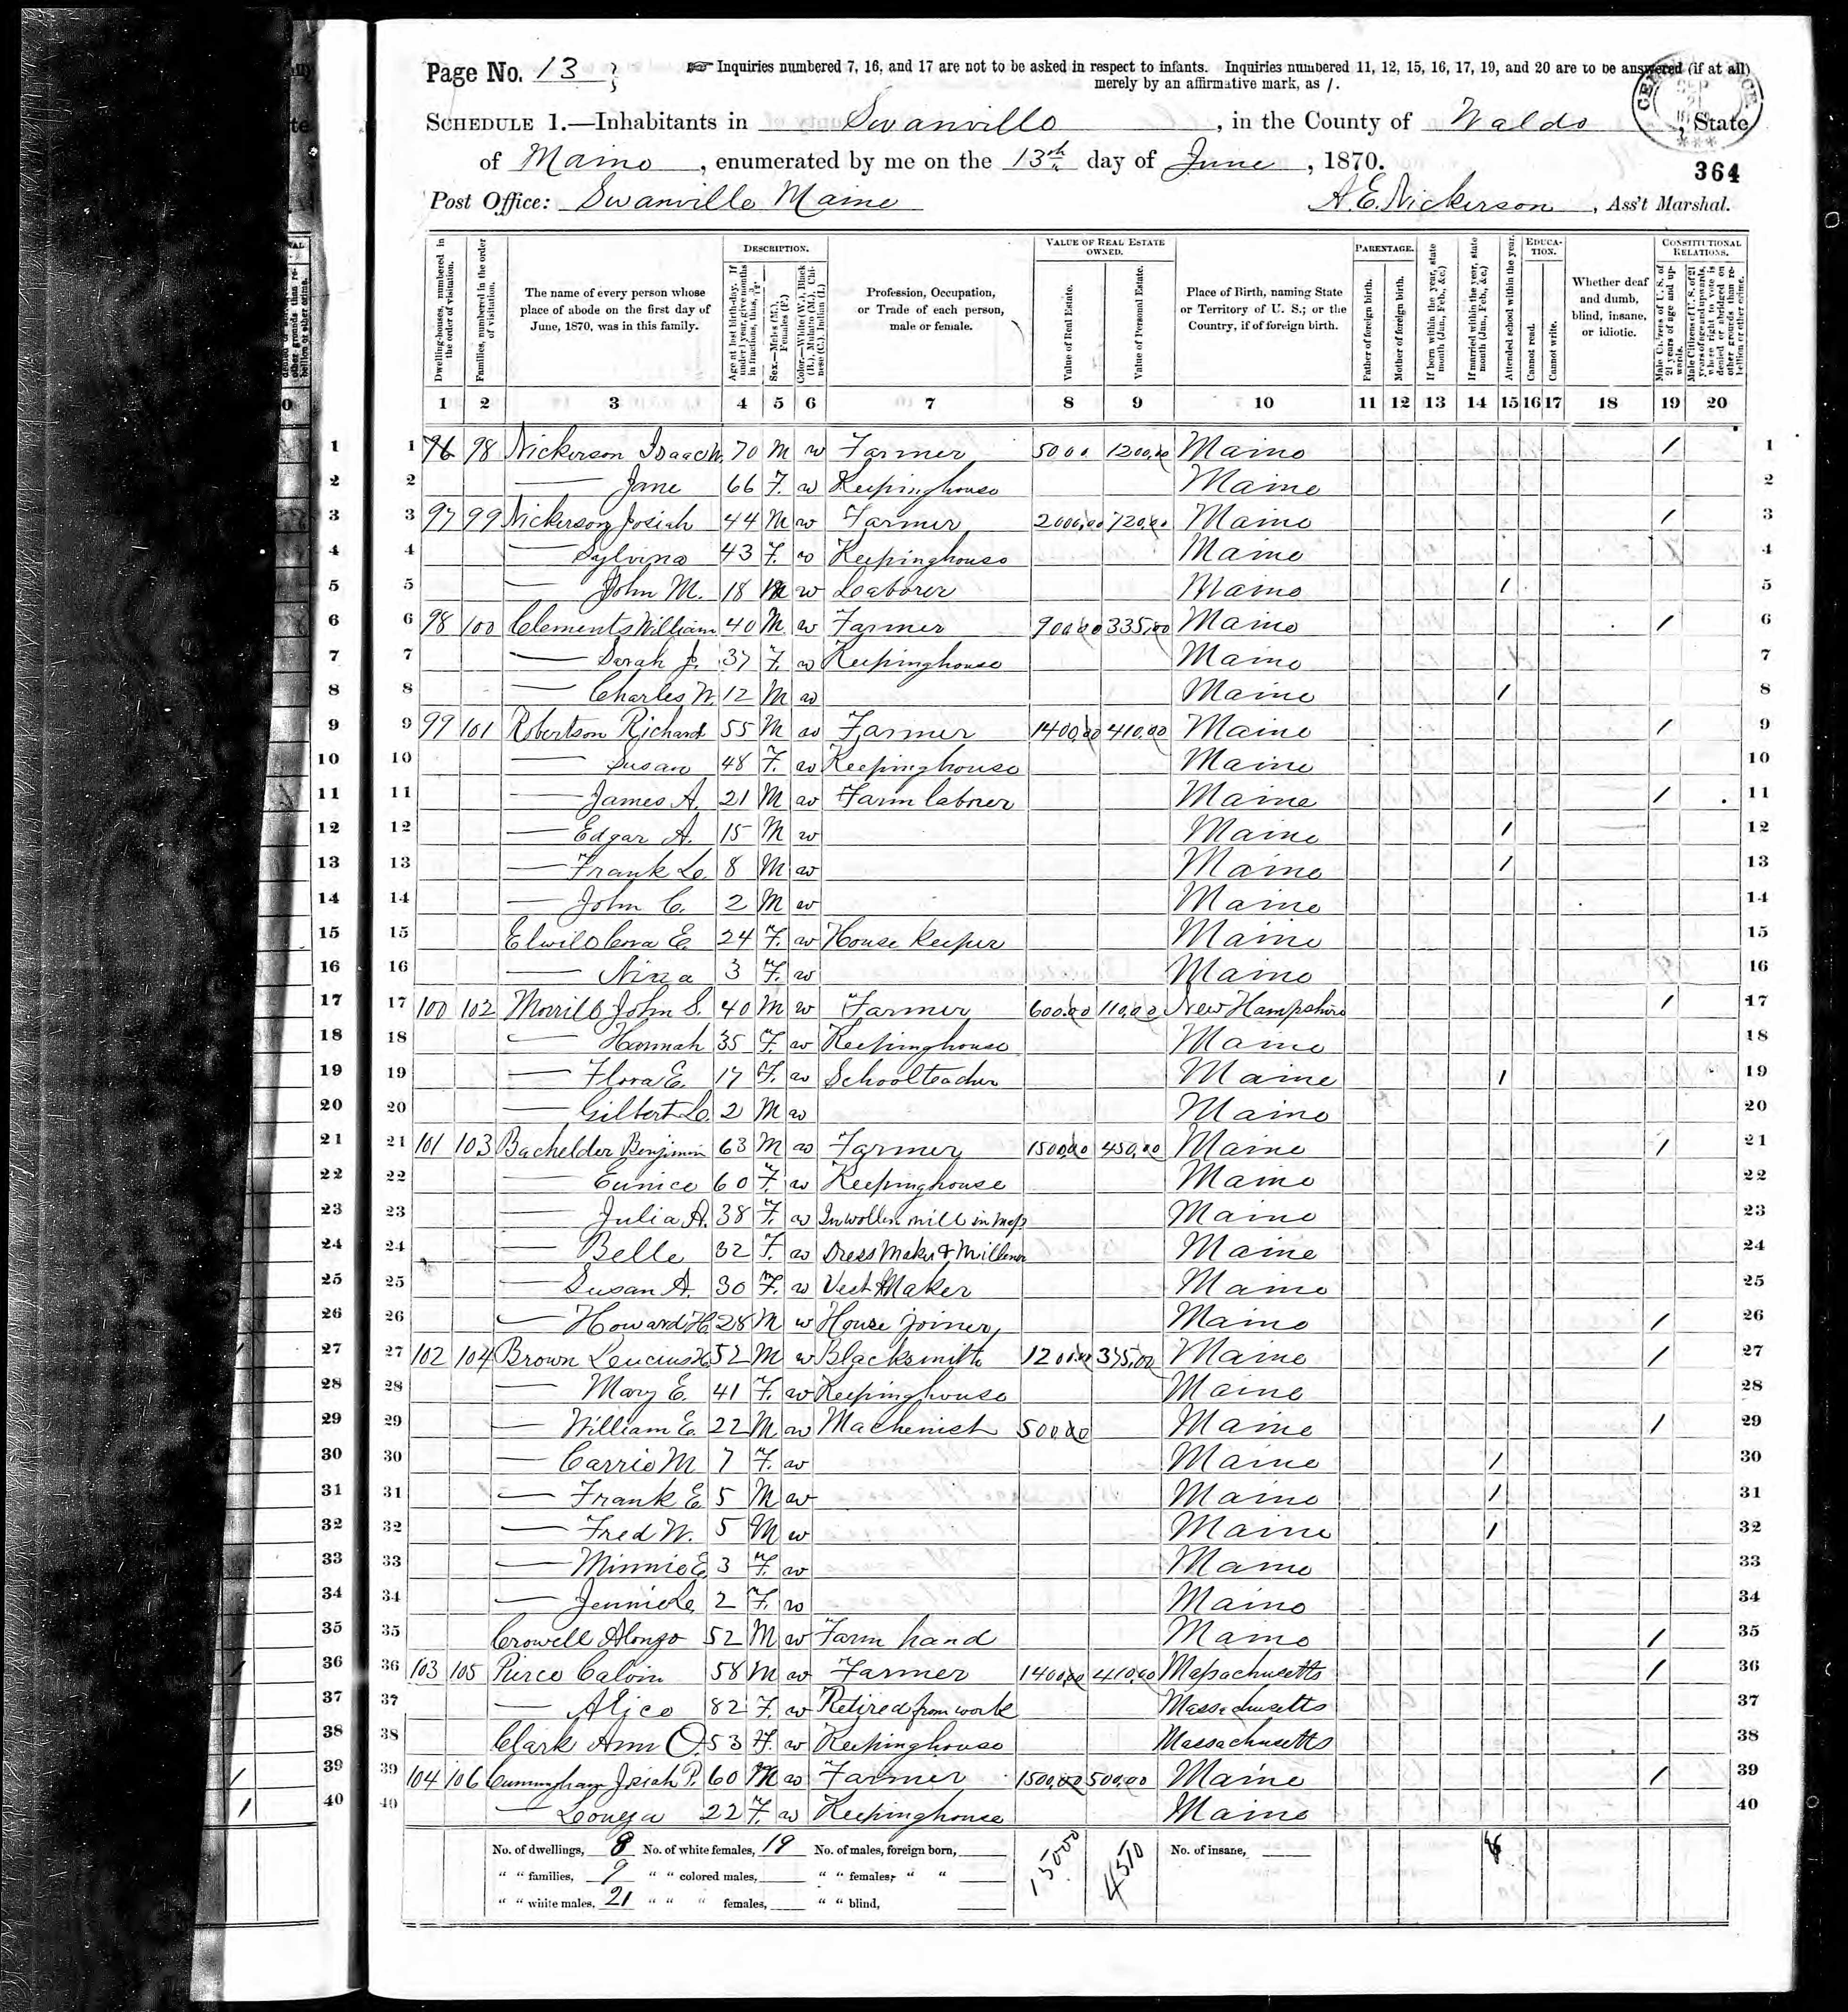 Page No. 13
Inquiries numbered 7, 16, and 17 are not to be asked in respect to infants. Inquiries numbered 11, 12, 15, 16, 17, 19, and 20 are to be answered (if at all)
merely by an affirmative mark, as /.
SCHEDULE 1.—Inhabitants in Swanville, in the County of Waldo, State
of Maine, enumerated by me on the 13th day of June, 1870.
364
Post Office: Swanville Maine A. E. Nickerson, Ass't Marshal.
Dwelling-houses, numbered in the order of visitation.
Families, numbered in the order of visitation.
The name of every person whose place of abode on the first day of June, 1870, was in this family.
DESCRIPTION.
Age at last birth-day. If under 1 year, give months in fractions, thus, 3/12.
Sex.—Males (M.), Females (F.)
Color.—White (W.), Black (B.), Mulatto (M.), Chinese (C.), Indian (I.)
Profession, Occupation, or Trade of each person, male or female.
VALUE OF REAL ESTATE OWNED.
Value of Real Estate.
Value of Personal Estate.
Place of Birth, naming State or Territory of U. S.; or the Country, if of foreign birth.
PARENTAGE.
Father of foreign birth.
Mother of foreign birth.
If born within the year, state month (Jan., Feb., &c.)
If married within the year, state month (Jan., Feb., &c.)
Attended school within the year.
EDUCATION.
Cannot read.
Cannot write.
Whether deaf and dumb, blind, insane, or idiotic.
CONSTITUTIONAL RELATIONS.
Male Citizens of U. S. of 21 years of age and upwards.
Male Citizens of U. S. of 21 years of age and upwards, whose right to vote is denied or abridged on other grounds than rebellion or other crime.
1 2 3 4 5 6 7 8 9 10 11 12 13 14 15 16 17 18 19 20
1 96 98 Nickerson Isaac W. 70 M w Farmer 5000 1200,00 Maine / 1
2 — Jane 66 F. w Keepinghouse Maine 2
3 97 99 Nickerson Josiah 44 M w Farmer 2000,00 720,00 Maine / 3
4 — Sylvina 43 F. w Keepinghouse Maine 4
5 — John M. 18 M w Leaborer Maine / 5
6 98 100 Clements William 40 M. w Farmer 900,00 335,00 Maine / 6
7 — Sarah J. 37 F. w Keepinghouse Maine 7
8 — Charles W. 12 M w Maine / 8
9 99 101 Robertson Richard 55 M w Farmer 1400,00 410,00 Maine / 9
10 — Susan 48 F. w Keepinghouse Maine 10
11 — James A. 21 M w Farm laborer Maine / 11
12 — Edgar A. 15 M w Maine / 12
13 — Frank L. 8 M w Maine / 13
14 — John C. 2 M w Maine 14
15 Elwell Cora E. 24 F. w House Keeper Maine 15
16 — Nina 3 F. w Maine 16
17 100 102 Morrill John S. 40 M w Farmer 600,00 110,00 New Hampshire / 17
18 — Hannah 35 F. w Keepinghouse Maine 18
19 — Flora E. 17 F. w Schoolteacher Maine / 19
20 — Gilbert L. 2 M w Maine 20
21 101 103 Bachelder Benjimin 63 M w Farmer 1500,00 450,00 Maine / 21
22 — Eunice 60 F. w Keepinghouse Maine 22
23 — Julia A. 38 F. w In wollen mill in Mass Maine 23
24 — Belle 32 F. w Dress Maker & Millener Maine 24
25 — Susan A. 30 F. w Vest Maker Maine 25
26 — Howard H. 28 M w House joiner Maine / 26
27 102 104 Brown Leucius H. 52 M w Blacksmith 1200,00 375,00 Maine / 27
28 — Mary E. 41 F. w Keepinghouse Maine 28
29 — William E. 22 M w Machenist 500,00 Maine / 29
30 — Carrie M 7 F. w Maine / 30
31 — Frank E. 5 M w Maine / 31
32 — Fred W. 5 M w Maine / 32
33 — Minnie E. 3 F. w Maine 33
34 — Jennie L. 2 F. w Maine 34
35 Crowell Alonzo 52 M w Farm hand Maine / 35
36 103 105 Pierce Calvin 58 M w Farmer 1400,00 410,00 Massachusetts / 36
37 — Alice 82 F. w Retired from work Massachusetts 37
38 Clark Ann O. 53 F. w Keepinghouse Massachusetts 38
39 104 106 Cunningham Josiah P. 60 M w Farmer 1500,00 500,00 Maine / 39
40 — Louiza 22 F. w Keepinghouse Maine 40
No. of dwellings, 8 No. of white females, 19 No. of males, foreign born, 15000 4510 No. of insane, 8
" " families, 9 " " colored males, " " females, " "
" " white males, 21 " " " females, " " blind,